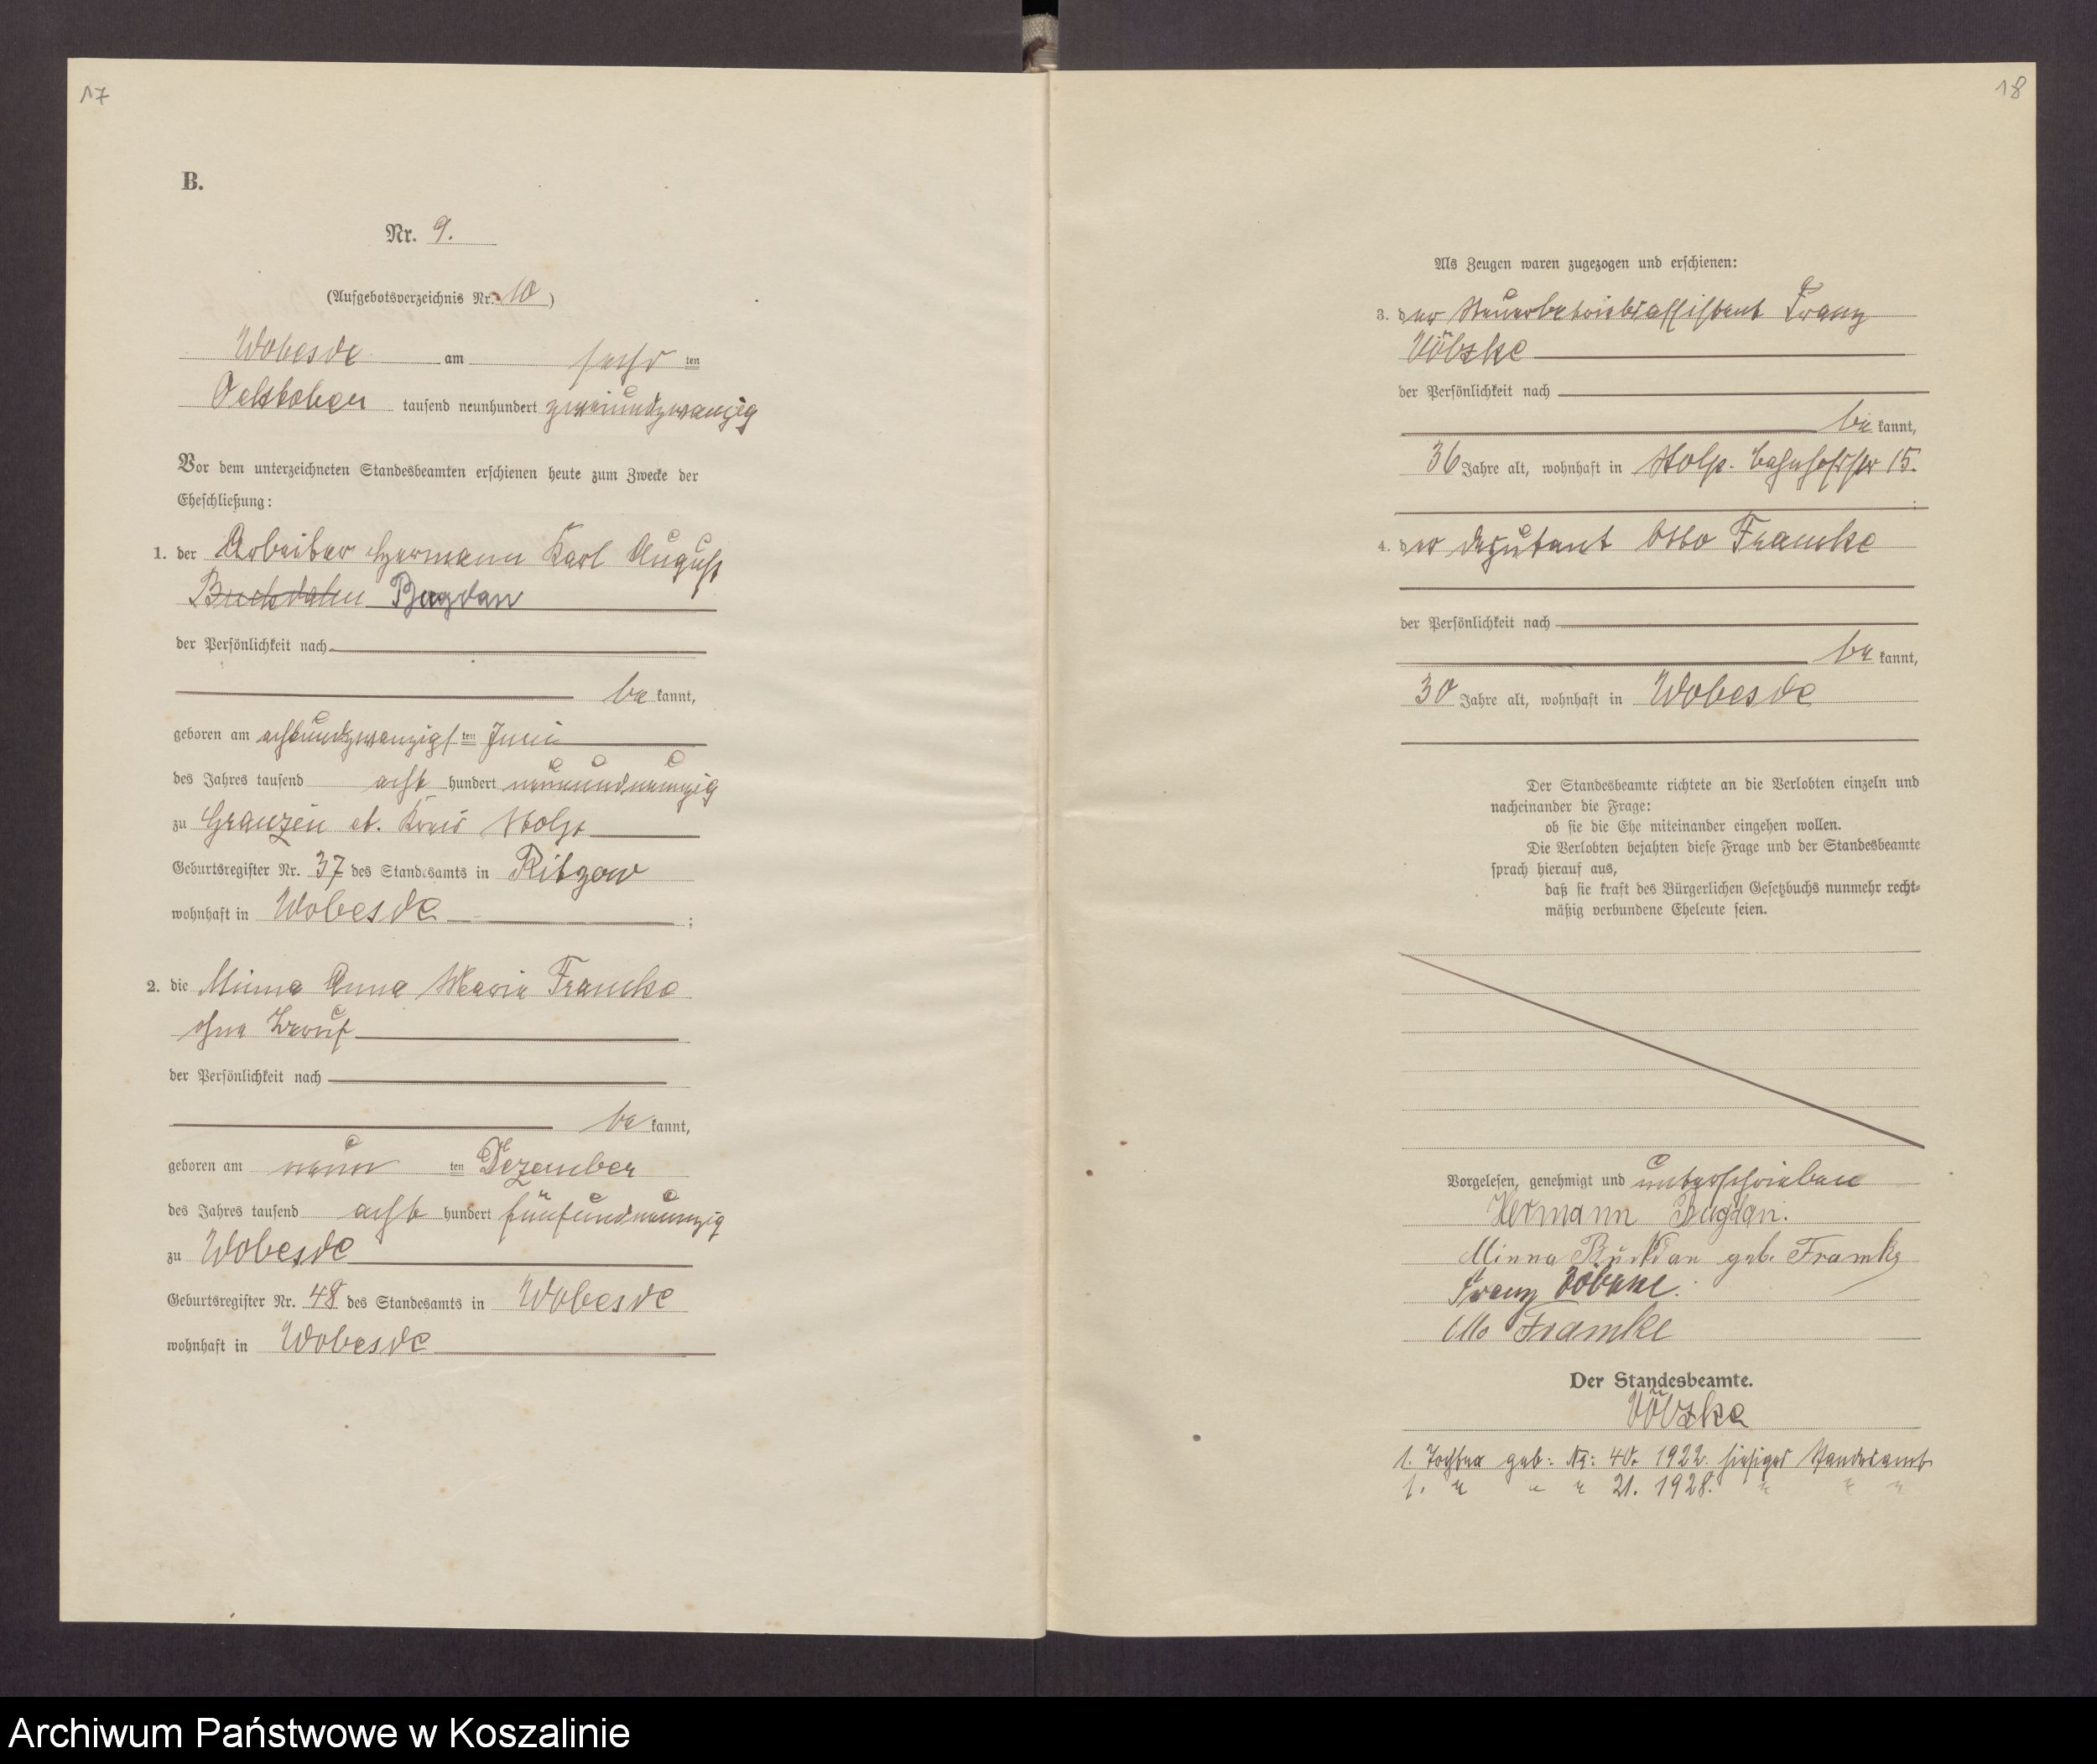 17
B.
Nr. 9.
(Aufgebotsverzeichnis Nr. 10)
Wobesde am sechs ten
Oektober tausend neunhundert zweiundzwanzig
Vor dem unterzeichneten Standesbeamten erschienen heute zum Zwecke der
Eheschließung:
1. der Arbeiter Hermann Karl August
Buchdahn Bugdan
der Persönlichkeit nach
be kannt,
geboren am achtundzwanzigs ten Juni
des Jahres tausend acht hundert neunundneunzig
zu Granzin et. Kreis Stolp
Geburtsregister Nr. 37 des Standesamts in Ritzow
wohnhaft in Wobesde ;
2. die Minna Anna Marie Framke
ohne Beruf
der Persönlichkeit nach
be kannt,
geboren am neun ten Dezember
des Jahres tausend acht hundert fünfundneunzig
zu Wobesde
Geburtsregister Nr. 48 des Standesamts in Wobesde
wohnhaft in Wobesde
18
Als Zeugen waren zugezogen und erschienen:
3. der Steuerbetriebsassistent Franz
Völzke
der Persönlichkeit nach
be kannt,
36 Jahre alt, wohnhaft in Stolp. Bahnhofstr 15.
;
4. der Deputant Otto Framke
der Persönlichkeit nach
be kannt,
30 Jahre alt, wohnhaft in Wobesde
Der Standesbeamte richtete an die Verlobten einzeln und
nacheinander die Frage:
ob sie die Ehe miteinander eingehen wollen.
Die Verlobten bejahten diese Frage und der Standesbeamte
sprach hierauf aus,
daß sie kraft des Bürgerlichen Gesetzbuchs nunmehr recht-
mäßig verbundene Eheleute seien.
Vorgelesen, genehmigt und unterschrieben
Hermann Bugdan.
Minna geb. Framke
Franz Völzke.
Otto Framke
Der Standesbeamte.
Völzke
1. Tochter geb: Nr: 40. 1922. hiesiges Standesamt
1. " " " 21. 1928. " " "
Archiwum Państwowe w Koszalinie